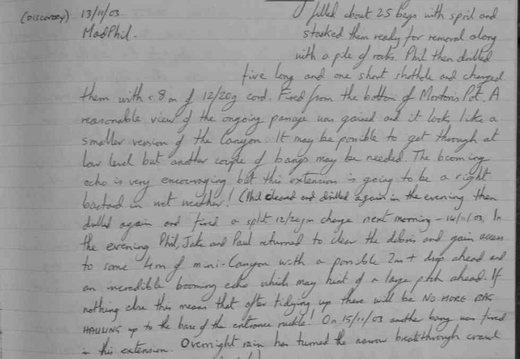 (DISCOVERY) 13/11/03 filled about 25 bags with spoil and
MadPhil. stacked them ready for removal along
with a pile of rocks. Phil then drilled
five long and one short shothole and charged
them with c.8m of 12/20g cord. Fired from the bottom of Mortons Pot. A
reasonable view of the ongoing passage was gained and it looks like a
smaller version of the Canyon. It may be possible to get through at
low level but another couple of bangs may be needed. The booming
echo is very encouraging but this extension is going to be a right
bastard in wet weather! (Phil cleared and drilled again in the evening then
drilled again and fired a split 12/20gm charge next morning - 14/11/03. In
the evening Phil, Jake and Paul returned to clear the debris and gain access
to some 4m of mini-Canyon with a possible 2m+ drop ahead and
an incredible booming echo which may hint of a large pitch ahead. If
nothing else this means that after tidying up there will be NO MORE BAG
HAULING up to the base of the entrance ! On 15/11/03 another bang was fired
in this extension. Overnight rain has turned the narrow breakthrough crawl